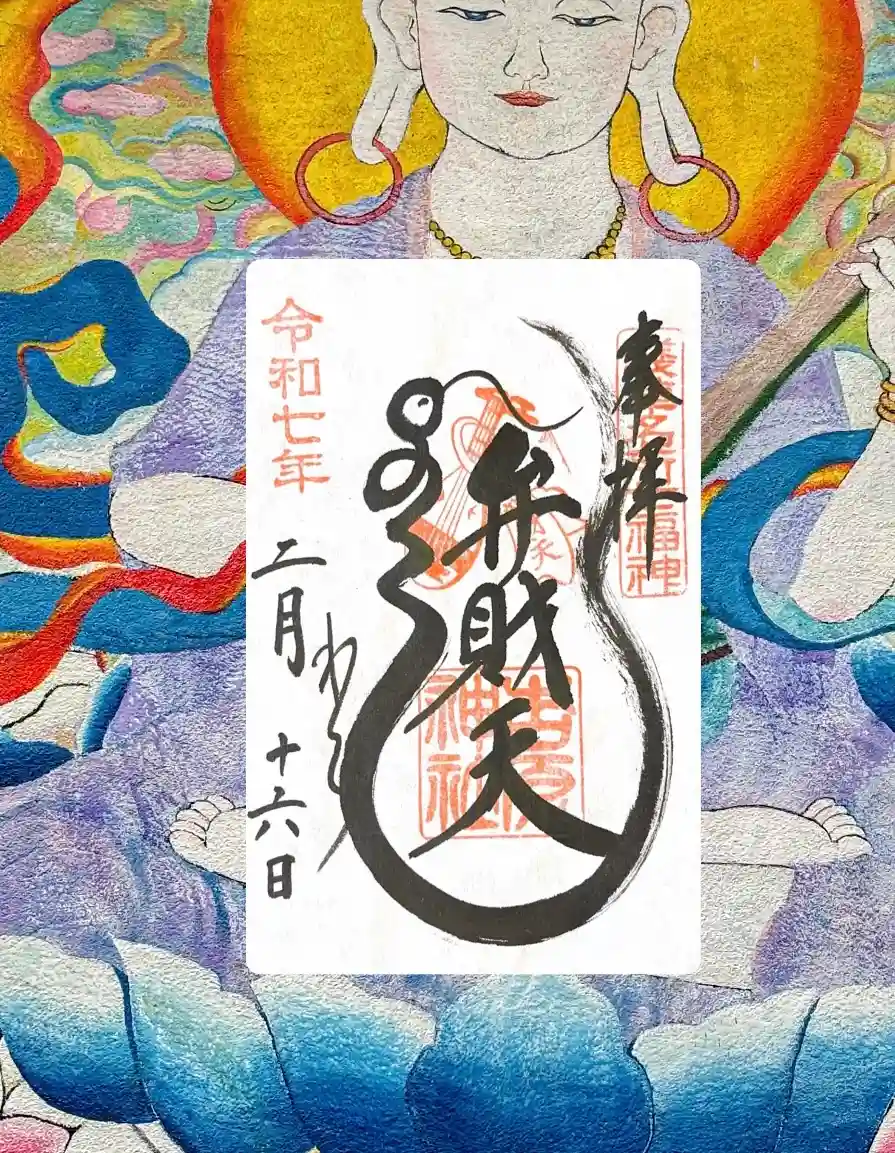 奉拝
福神
弁財天
吉原神社
令和七年
二月
十六日